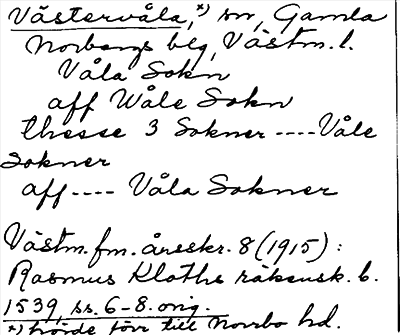 Västervåla,*) sn, Gamla
Norbergs blg, Västm. l.
Våla Sokn
aff Wåle Sokn
thesse 3 Sokner ---- Våle
Sokner
aff ---- Våla Sokner
Västm. fm. årsskr. 8 (1915) :
Rasmus Kloths räkensk. b.
1539, ss. 6-8. orig.
*) hörde förr till Norrbo hd.